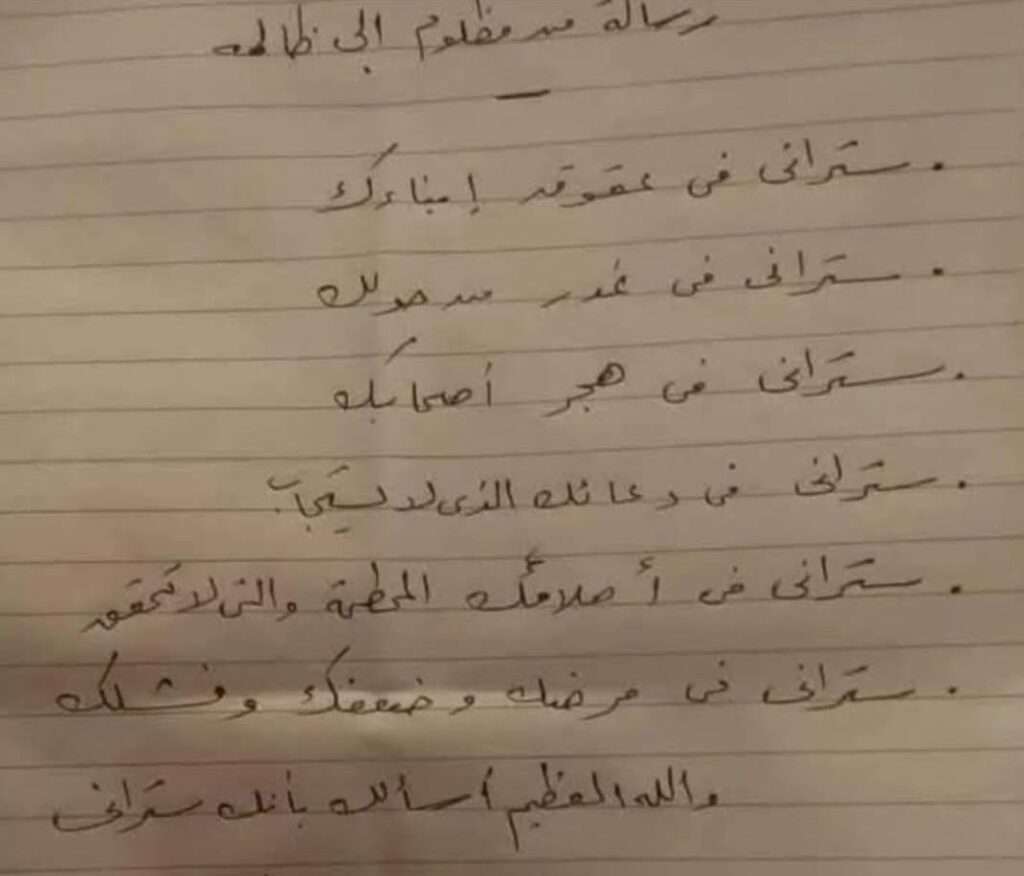 رسالة من مظلوم الى ظالمه
. سترانى فى عقوق إبناءك
. سترانى فى غدر من حولك
. سترانى فى هجر أصحابك
. سترانى فى دعائك الذى لا يستجاب
. سترانى فى أحلامك المحطمة والتى لا تحقق
. سترانى فى مرضك وضعفك وفشلك
والله العظيم أسألك بأنك سترانى